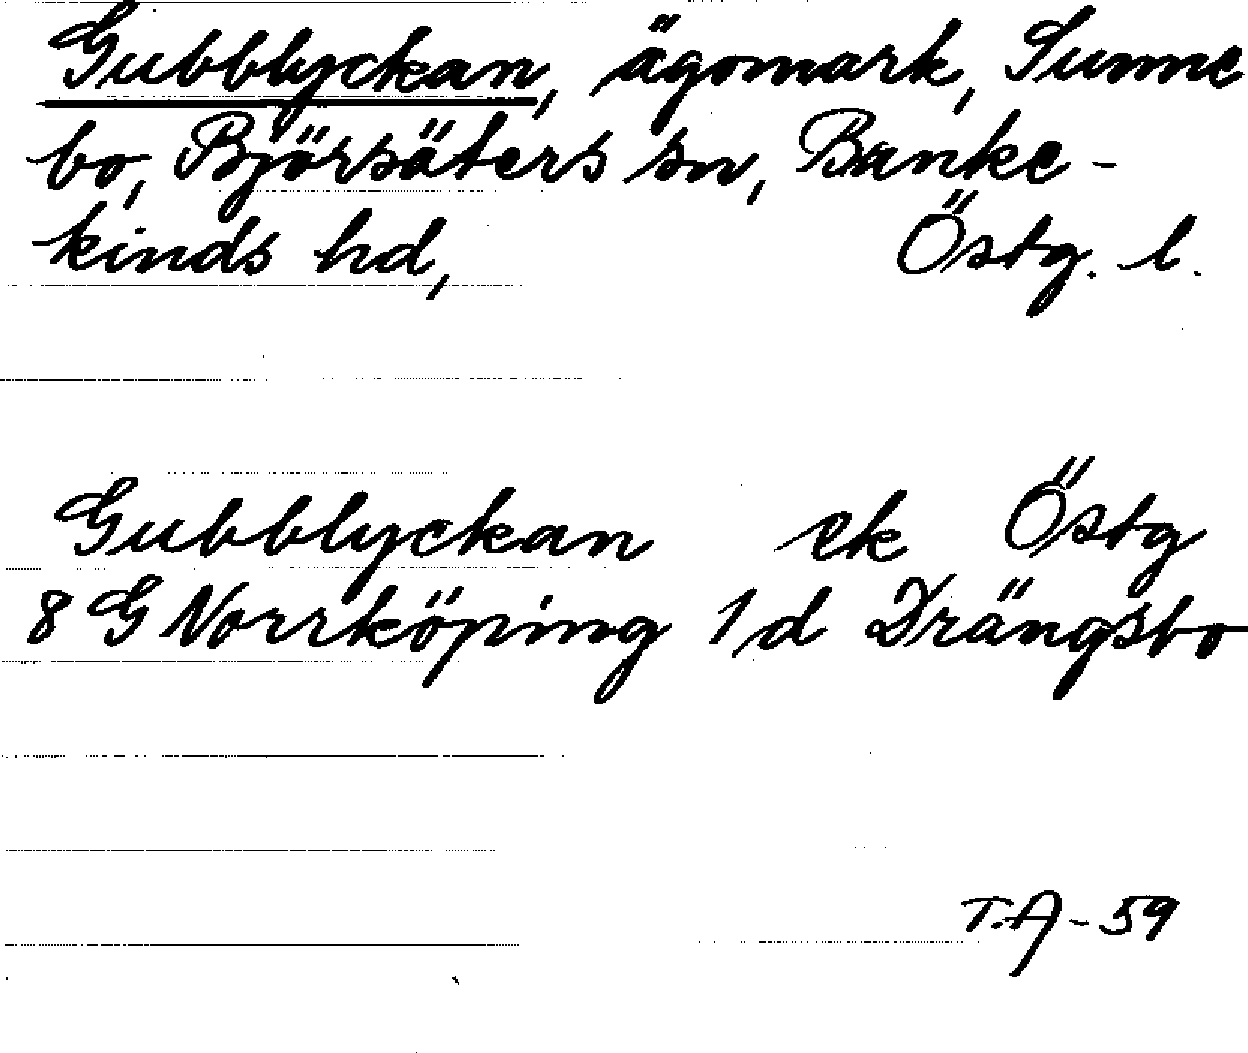 Gubblyckan, ägomark, Sunne
bo, Björsäters sn, Banke-
kinds hd, Östg. l.
Gubblyckan ek Östg
8 G Norrköping 1d Drängsbo
T.A-59